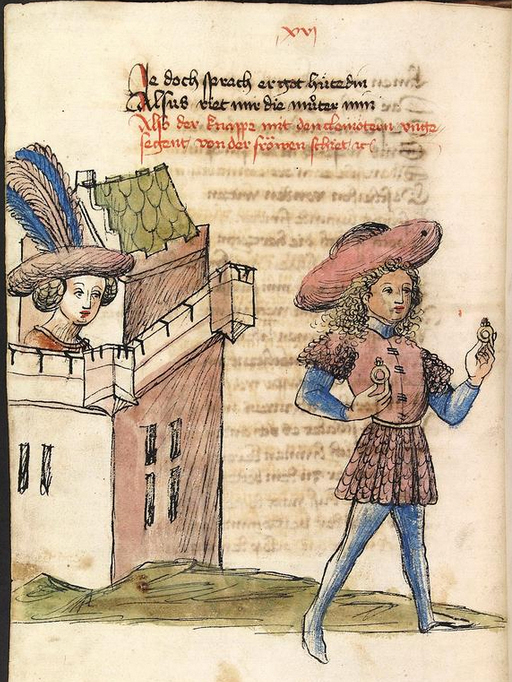 xvi
Je doch sprach er got hüte din
Alsus riet mir die můter min
Also der knappe mit den cleinötern vnge
segent von der fröwen schiet ꝛc